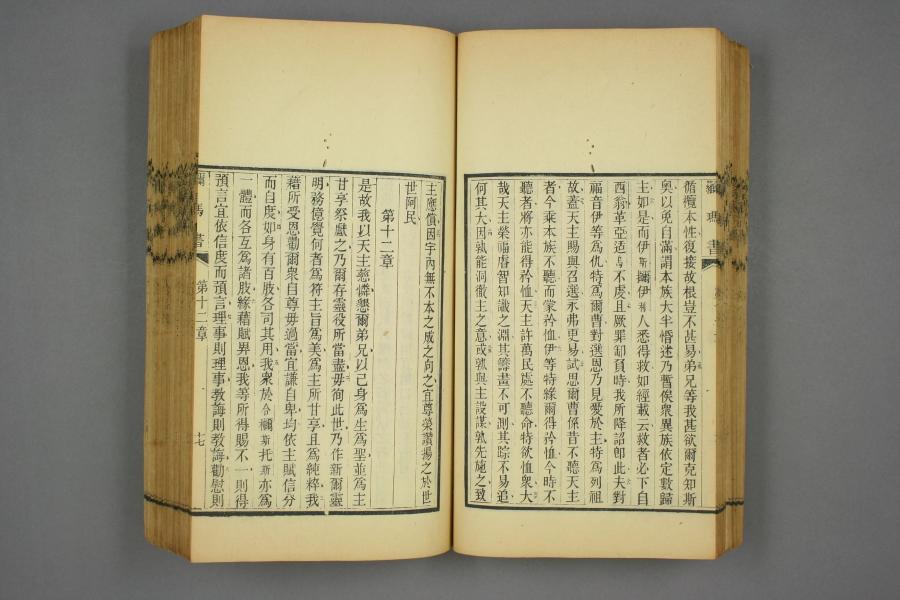 循欖本性復接故根豈不甚易弟兄等我甚欲爾克知斯
奧以免自滿謂本族大半悟述乃暫俟衆異族依定數歸
主如是而伊斯爾伊人悉得救如經載云救者必下自
西翁革亞适不虔且厥罪卸頁時我所降詔卽此夫對
福音伊等為仇特為爾曹對選恩乃見愛於主特為列祖
故蓋天主賜與召選永弗更易試思爾曹係昔不聽天主
者今乘本族不聽而蒙矜恤伊等特緣爾得矜恤今時不
聽者將亦能得矜恤天主許萬民處不聽命特欲恤衆大
哉天主榮福睿智知識之淵其籌畫不可測其踪不易追
何其大因孰能洞徹主之意或孰與主設謀孰先施之致
羅瑪書
主應償因宇內無不本之成之向之宜尊榮讚揚之於世
世阿民
第十二章
是故我以天主慈憐懇爾弟兄以己身為生為聖並為主
甘享祭獻之乃爾存靈役所當盡毋徇此世乃作新爾靈
明務億覺何者為符主旨為美為主所甘享且為純粹我
藉所受恩勸爾衆自尊毋過當宜謙自卑均依主賦信分
而自度如身有百肢各司其用我衆於合爾斯托斯亦為
一體而各互為諸肢緣藉賦畀恩我等所得賜不一則得
預言宜依信度而預言理事則理事教誨則教誨勸慰則
羅瑪書 第十二章 十七